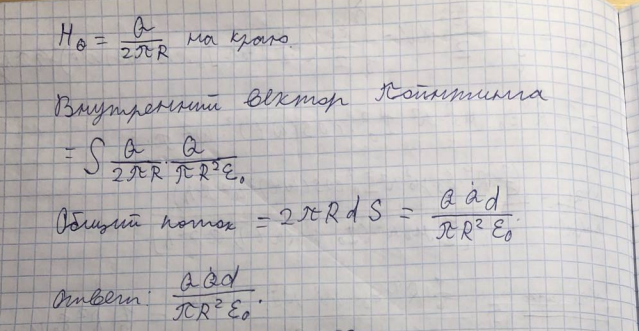 H_θ = Q / 2πR на краю.
Внутренний вектор Пойнтинга
= ∫ Q / 2πR · Q / πR²ε₀
Общий поток = 2πRdS = Q Q̇ d / πR²ε₀.
Ответ: Q Q̇ d / πR²ε₀.